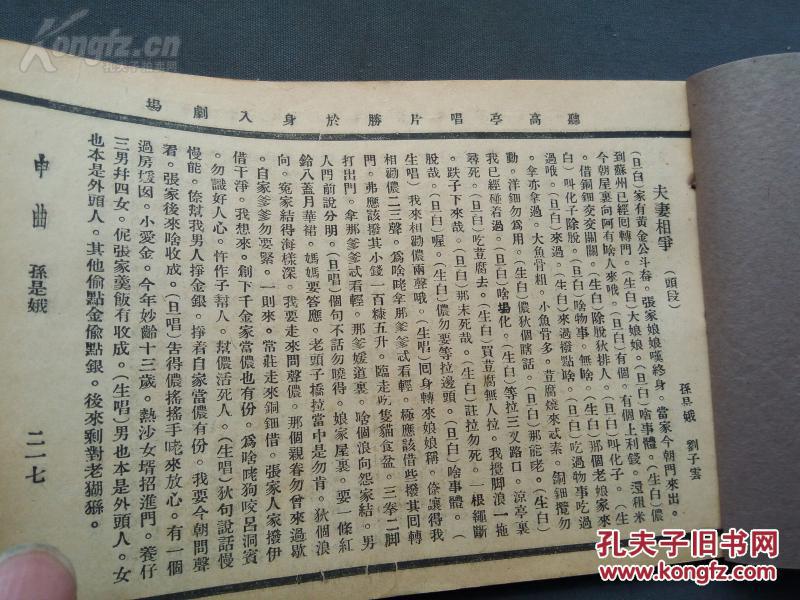 聽高亭唱片勝於身入劇場
夫妻相爭 (頭段) 孫是娥 劉子雲
(旦白)家有黃金公斗吞。張家娘娘嘆終身。當家今朝門來出。
到蘇州已經囘轉門。(生白)大娘娘。(旦白)啥事體。(生白)儂
今朝屋裏向阿有啥人來哦。(旦白)有個。有個上利錢。還租米
。借銅鈿交交關關。(生白)除脫狄排人。(旦白)叫化子。(生
白)叫化子除脫。(旦白)啥物事。無啥。(生白)那個老娘家來
過哦。(旦白)來過。(生白)來過撥點啥。(旦白)吃過物事吃過
。拿亦拿過。大魚骨粗。小魚骨多。荳腐燒來忒素。銅鈿攬勿
動。洋鈿勿爲用。(生白)儂狄個瞎話。(旦白)那能咾。(生白)
我已經碰着過。(旦白)啥場化。(生白)等拉三叉路口。涼亭裏
尋死。(旦白)吃荳腐去。(生白)買荳腐無人拉。我攪脚浪一拖
。跌子下來哉。(旦白)那末死哉。(生白)註拉勿死。一根繩斷
股哉。(旦白)喔。(生白)儂勿要等拉邊頭。(旦白)啥事體。(
生唱)我來相勸儂兩聲哦。(生唱)囘身轉來娘娘稱。倷讓得我
相勸儂二三聲。爲啥咾拿那爹爹忒看輕。極應該借些撥其囘轉
門。弗應該撥其小錢一百糠五升。臨走吃隻貓食盆。三拳二脚
打出門。拿那爹爹忒看輕。那爹媛道裏。啥個浪向怨家結。男
人門前說分明。(旦唱)個句不話勿曉得。娘家屋裏。要一條紅
鈴八蓋月華裙。媽媽要答應。老頭子橋拉當中是勿肯。狄個浪
向。寃家結得海樣深。我要走來問聲儂。那個親眷勿曾來過歇
。自家爹爹勿要緊。一則來。當莊走來銅鈿借。張家人家撥伊
借干淨。我想來。創下千金家當儂也有份。爲啥咾狗咬呂洞賓
。勿識好人心。忤作子幫人。幫儂活死人。(生唱)狄句說話慢
慢能。倷幫我男人掙金銀。掙着自家當儂有份。我要今朝問聲
看。張家後來啥收成。(旦唱)告得儂搖搖手咾來放心。有一個
過房囡。小愛金。今年妙齡十三歲。熱沙女壻招進門。養仔
三男幷四女。伲張家羹飯有收成。(生唱)男也本是外頭人。女
也本是外頭人。其他偷點金偷點銀。後來剩對老猢猻。
申曲 孫是娥 二一七
Kongfz.com
孔夫子旧书网
孔夫子旧书网
KONGFZ.COM